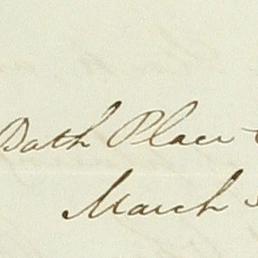 Bath Place
March